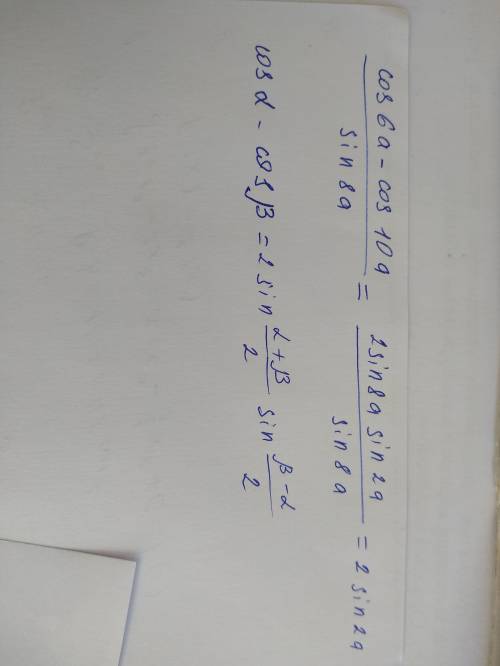 cos 6a - cos 10a / sin 8a = 2 sin 8a sin 2a / sin 8a = 2 sin 2a
cos α - cos β = 2 sin α+β / 2 sin β-α / 2